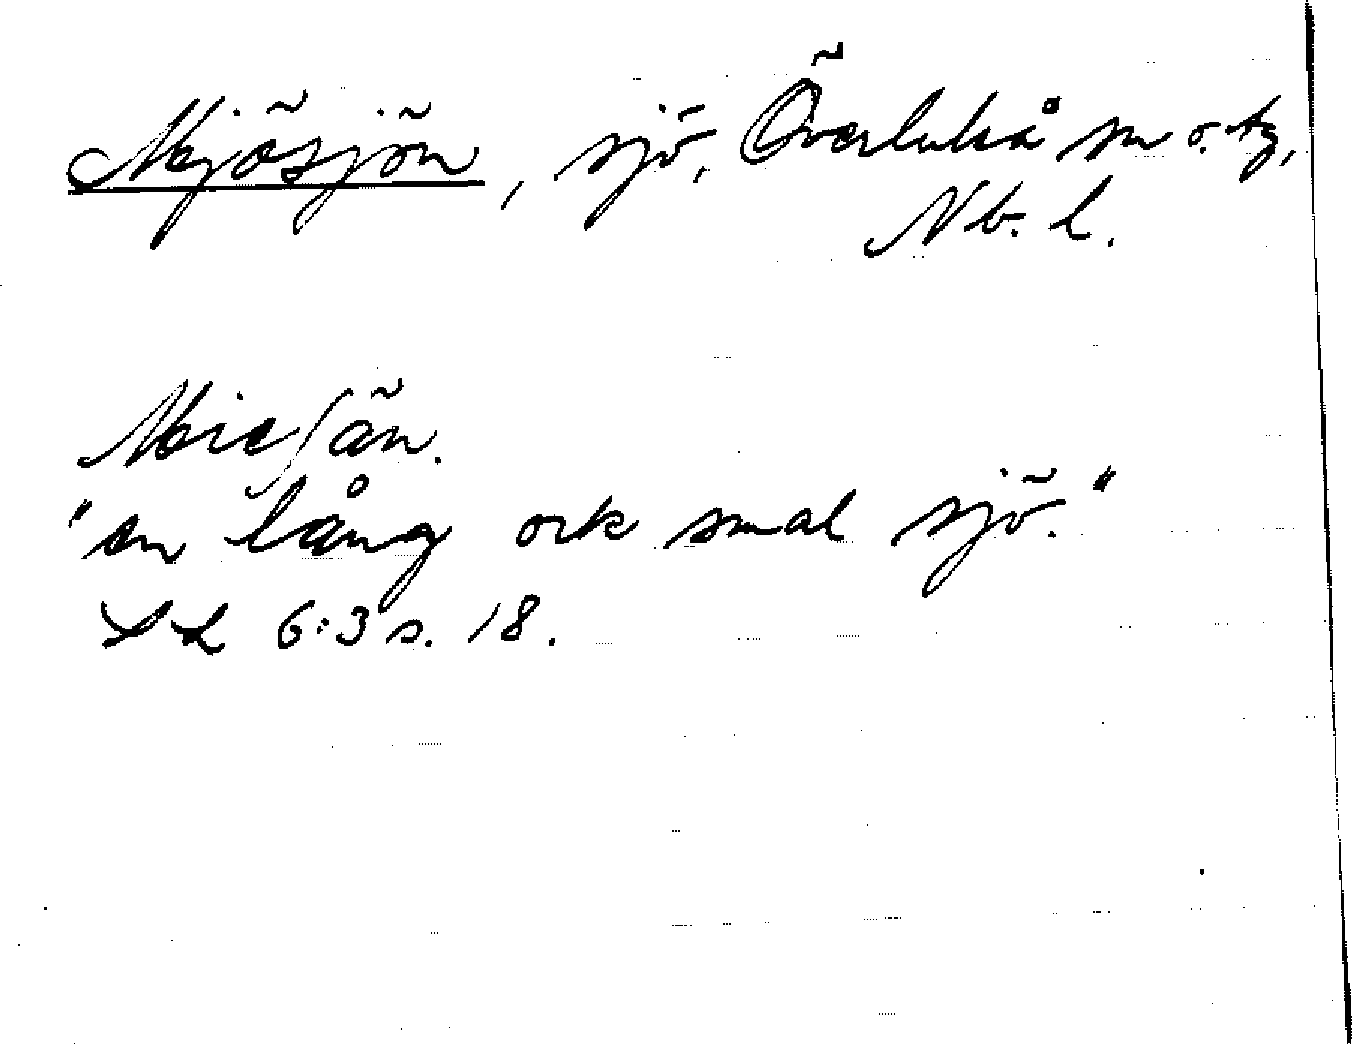 Mjösjön, sjö, Överluleå sn o. tg,
Nb. l.
"en lång ock smal sjö."
SL 6:3 s. 18.